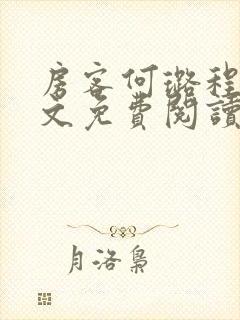 房客何璐程
文免費閱讀
月洛梟